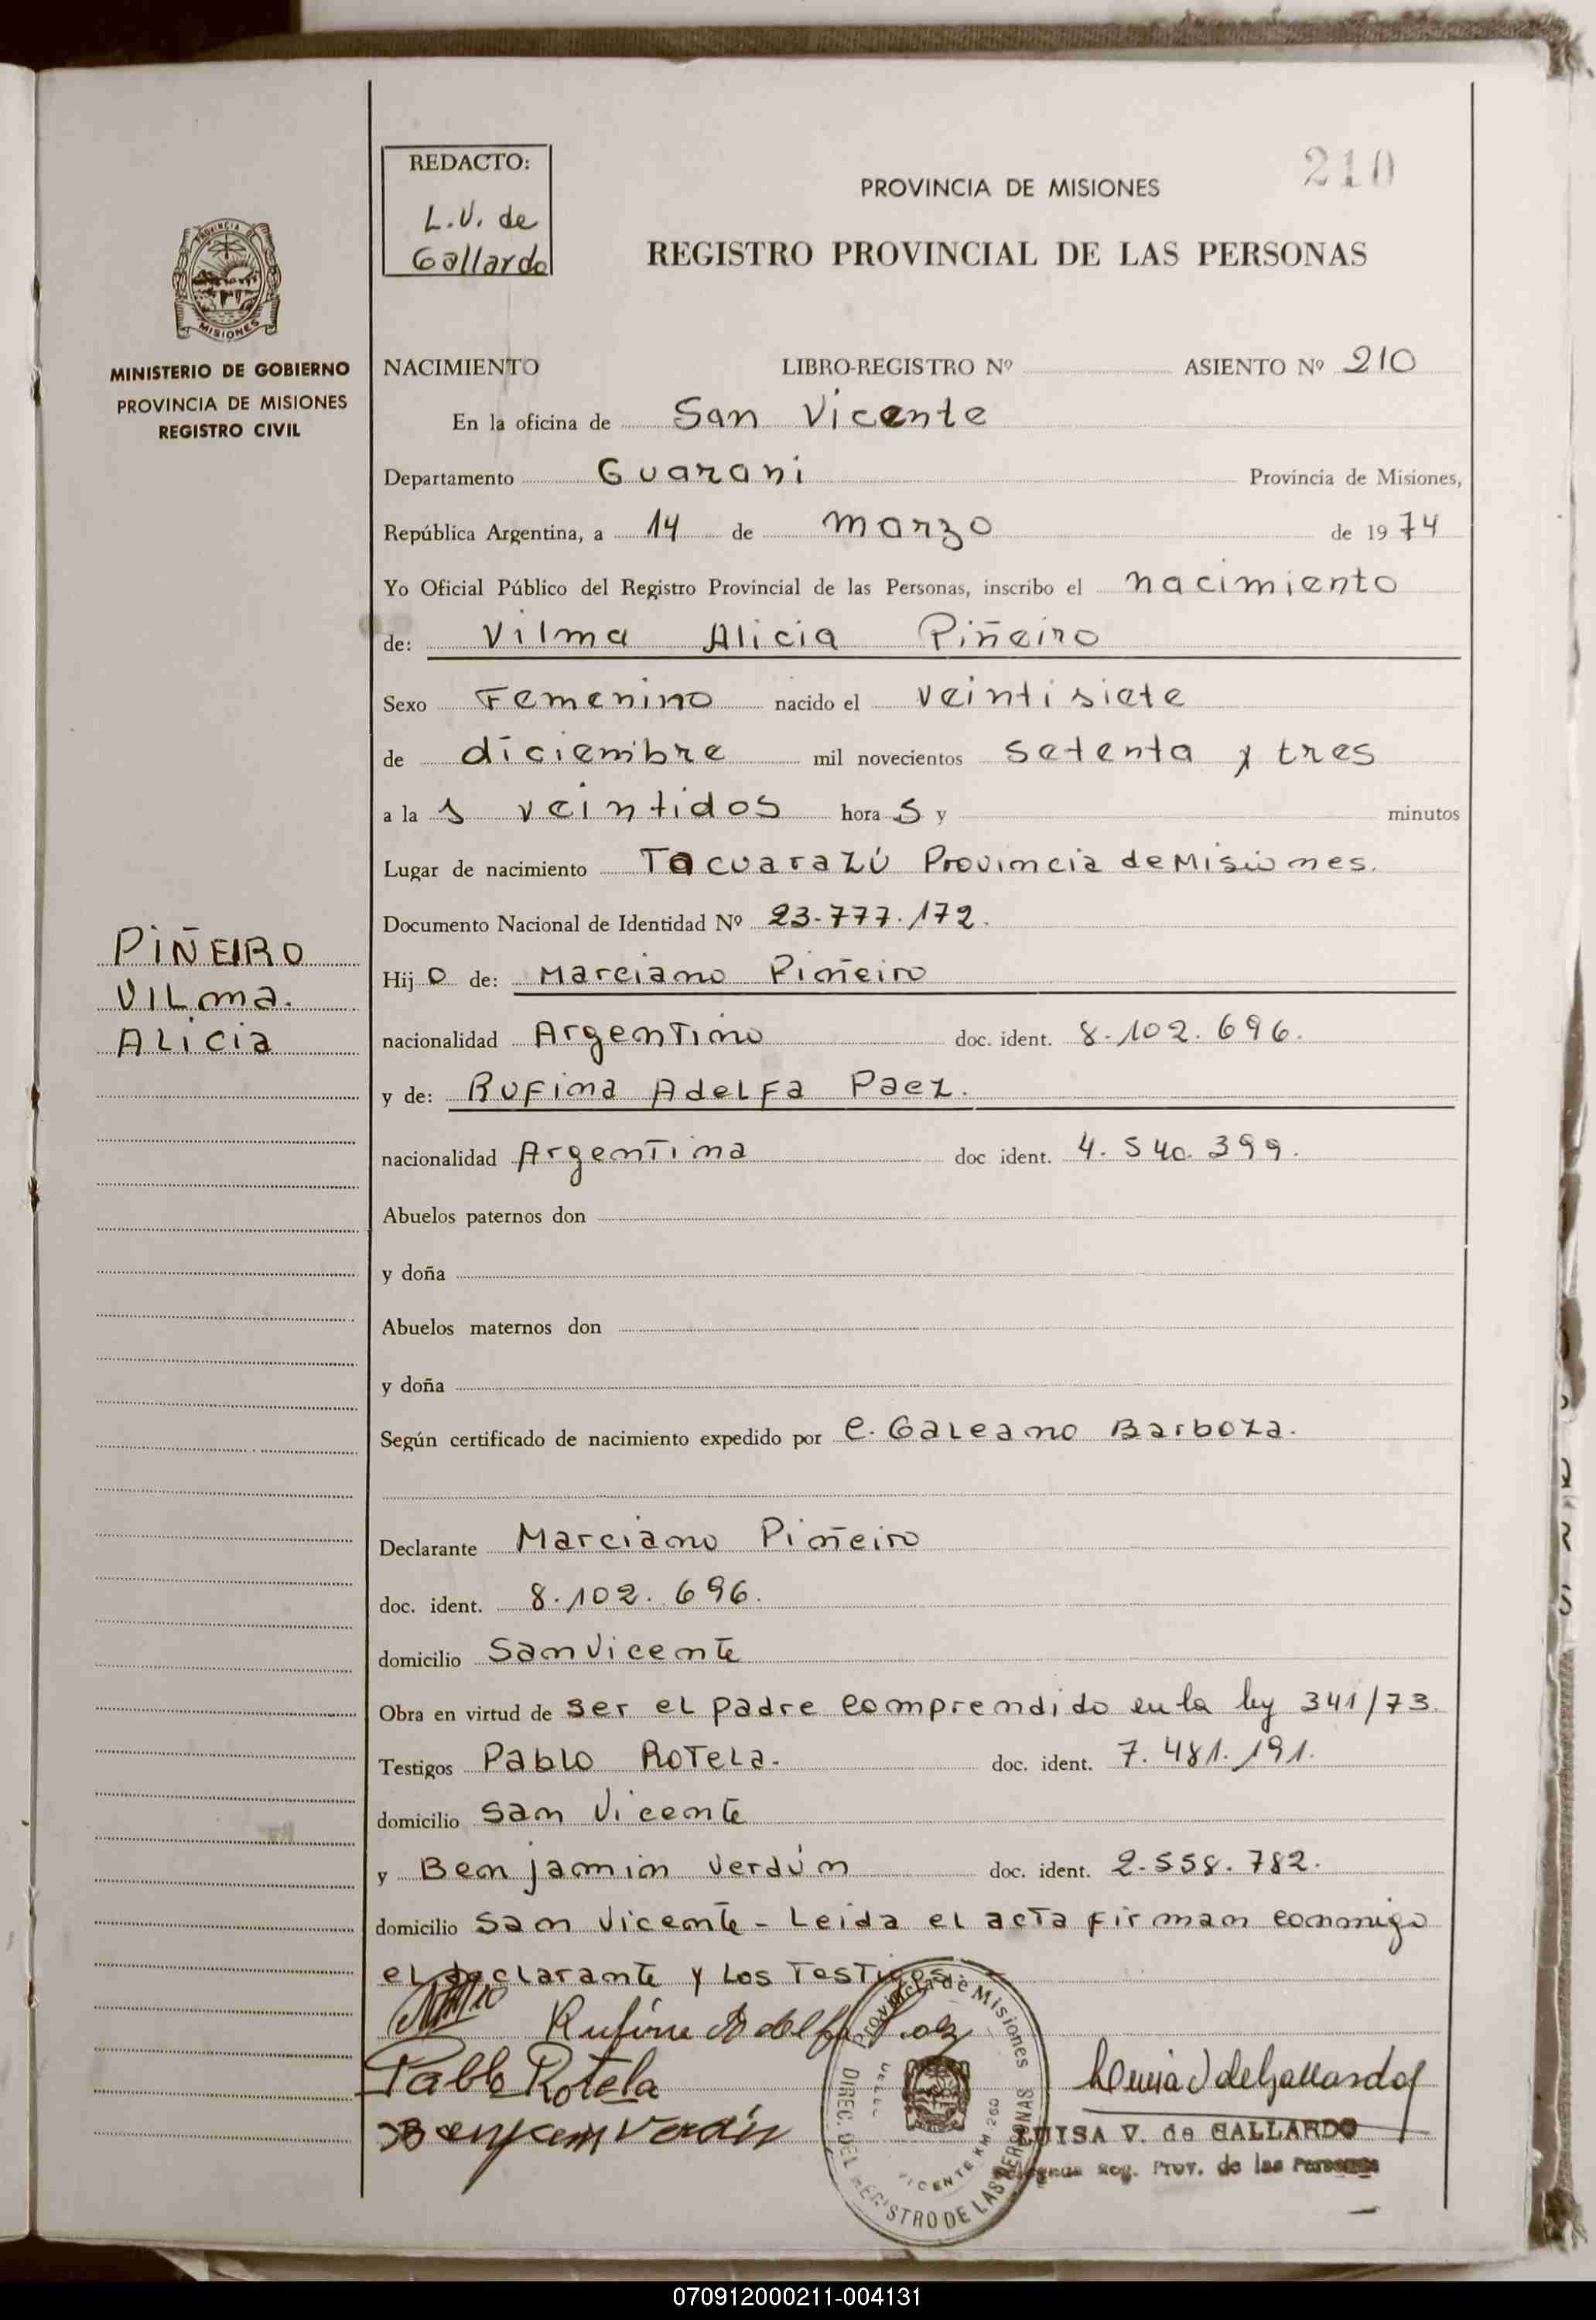 210
REDACTO:
L.V. de
Gallardo
PROVINCIA DE MISIONES
REGISTRO PROVINCIAL DE LAS PERSONAS
PROVINCIA DE
MISIONES
MINISTERIO DE GOBIERNO
PROVINCIA DE MISIONES
REGISTRO CIVIL
NACIMIENTO LIBRO-REGISTRO Nº ASIENTO Nº 210
En la oficina de San Vicente
Departamento Guarani Provincia de Misiones,
República Argentina, a 14 de marzo de 1974
Yo Oficial Público del Registro Provincial de las Personas, inscribo el nacimiento
de: Vilma Alicia Piñeiro
Sexo Femenino nacido el veintisiete
de diciembre mil novecientos setenta y tres
a la s veintidos hora s y minutos
Lugar de nacimiento Tacuarazú Provincia de Misiones.
Documento Nacional de Identidad Nº 23-777.172.
PIÑEIRO
VILma.
ALicia
Hij o de: Marciano Piñeiro
nacionalidad Argentino doc. ident. 8.102.696.
y de: Rufina Adelfa Paez.
nacionalidad Argentina doc. ident. 4.540.399.
Abuelos paternos don
y doña
Abuelos maternos don
y doña
Según certificado de nacimiento expedido por e. Galeano Barboza.
Declarante Marciano Piñeiro
doc. ident. 8.102.696.
domicilio San Vicente
Obra en virtud de ser el padre comprendido en la ley 341/73.
Testigos Pablo Rotela. doc. ident. 7.481.191.
domicilio San Vicente
y Benjamin Verdún doc. ident. 2.558.782.
domicilio San Vicente - Leida el acta firman conmigo
el declarante y los Testigos.
Rufina Adelfa Paez
Pablo Rotela
Benjamin Verdún
Provincia de Misiones
DIREC. DEL REGISTRO DE LAS PERSONAS
VICENTE KM 260
Luisa V de Gallardo
LUISA V. de GALLARDO
Reg. Prov. de las Personas
070912000211-004131